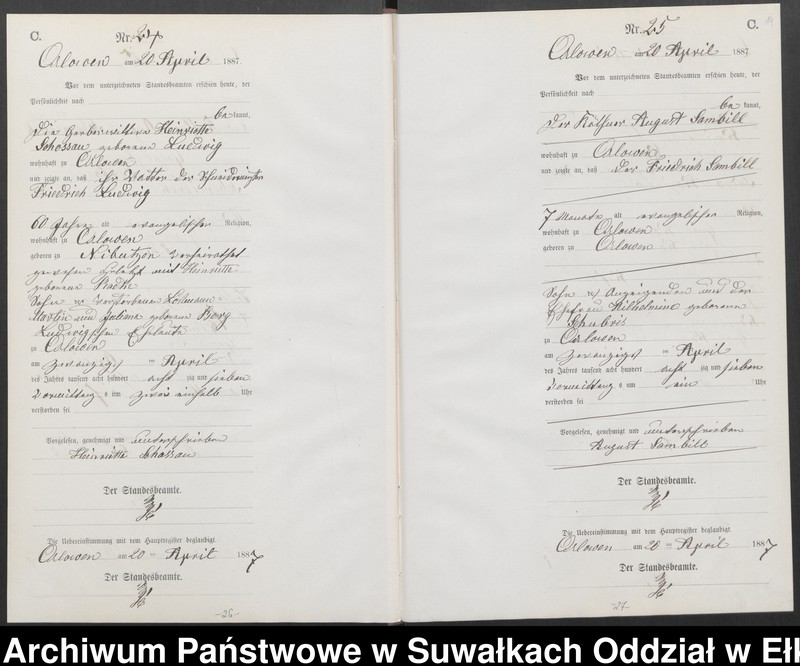 C.
Nr. 24
Orlowen am 20 April 1887.
Vor dem unterzeichneten Standesbeamten erschien heute, der
Persönlichkeit nach
be kannt,
die Gerberwittwe Heinriette
Schossau geborene Ludwig
wohnhaft zu Orlowen
und zeigte an, daß ihr Vatter der Schneidermeister
Friedrich Ludwig
60 Jahre alt evangelischer Religion,
wohnhaft zu Orlowen
geboren zu verheirathet
gewesen zuletzt mit Heinriette
geborene Radke
Sohn der verstorbenen
Martin und geborene Borg
Ludwigschen Eheleute
zu Orlowen
am zwanzigsten April
des Jahres tausend acht hundert acht zig und sieben
Vormittags um zwei einhalb Uhr
verstorben sei
Vorgelesen, genehmigt und unterschrieben
Heinriette Schossau
Der Standesbeamte.
Die Uebereinstimmung mit dem Hauptregister beglaubigt.
Orlowen am 20 ten April 1887
Der Standesbeamte.
-26-
Nr. 25
C.
Orlowen am 20 April 1887.
Vor dem unterzeichneten Standesbeamten erschien heute, der
Persönlichkeit nach
be kannt,
der Käthner August Sambill
wohnhaft zu Orlowen
und zeigte an, daß der Friedrich Sambill
7 Monate alt evangelischer Religion,
wohnhaft zu Orlowen
geboren zu Orlowen
Sohn des Anzeigenden und der
Ehefrau Wilhelmine geborene
zu Orlowen
am zwanzigsten April
des Jahres tausend acht hundert acht zig und sieben
Vormittags um ein Uhr
verstorben sei
Vorgelesen, genehmigt und unterschrieben
August Sambill
Der Standesbeamte.
Die Uebereinstimmung mit dem Hauptregister beglaubigt.
Orlowen am 20 ten April 1887
Der Standesbeamte.
-27-
Archiwum Państwowe w Suwałkach Oddział w Eł